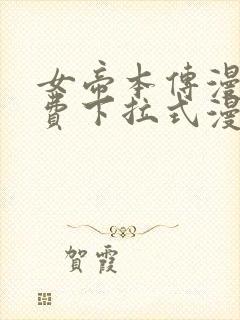 女帝本傳漫
費下拉式漫
賀霞